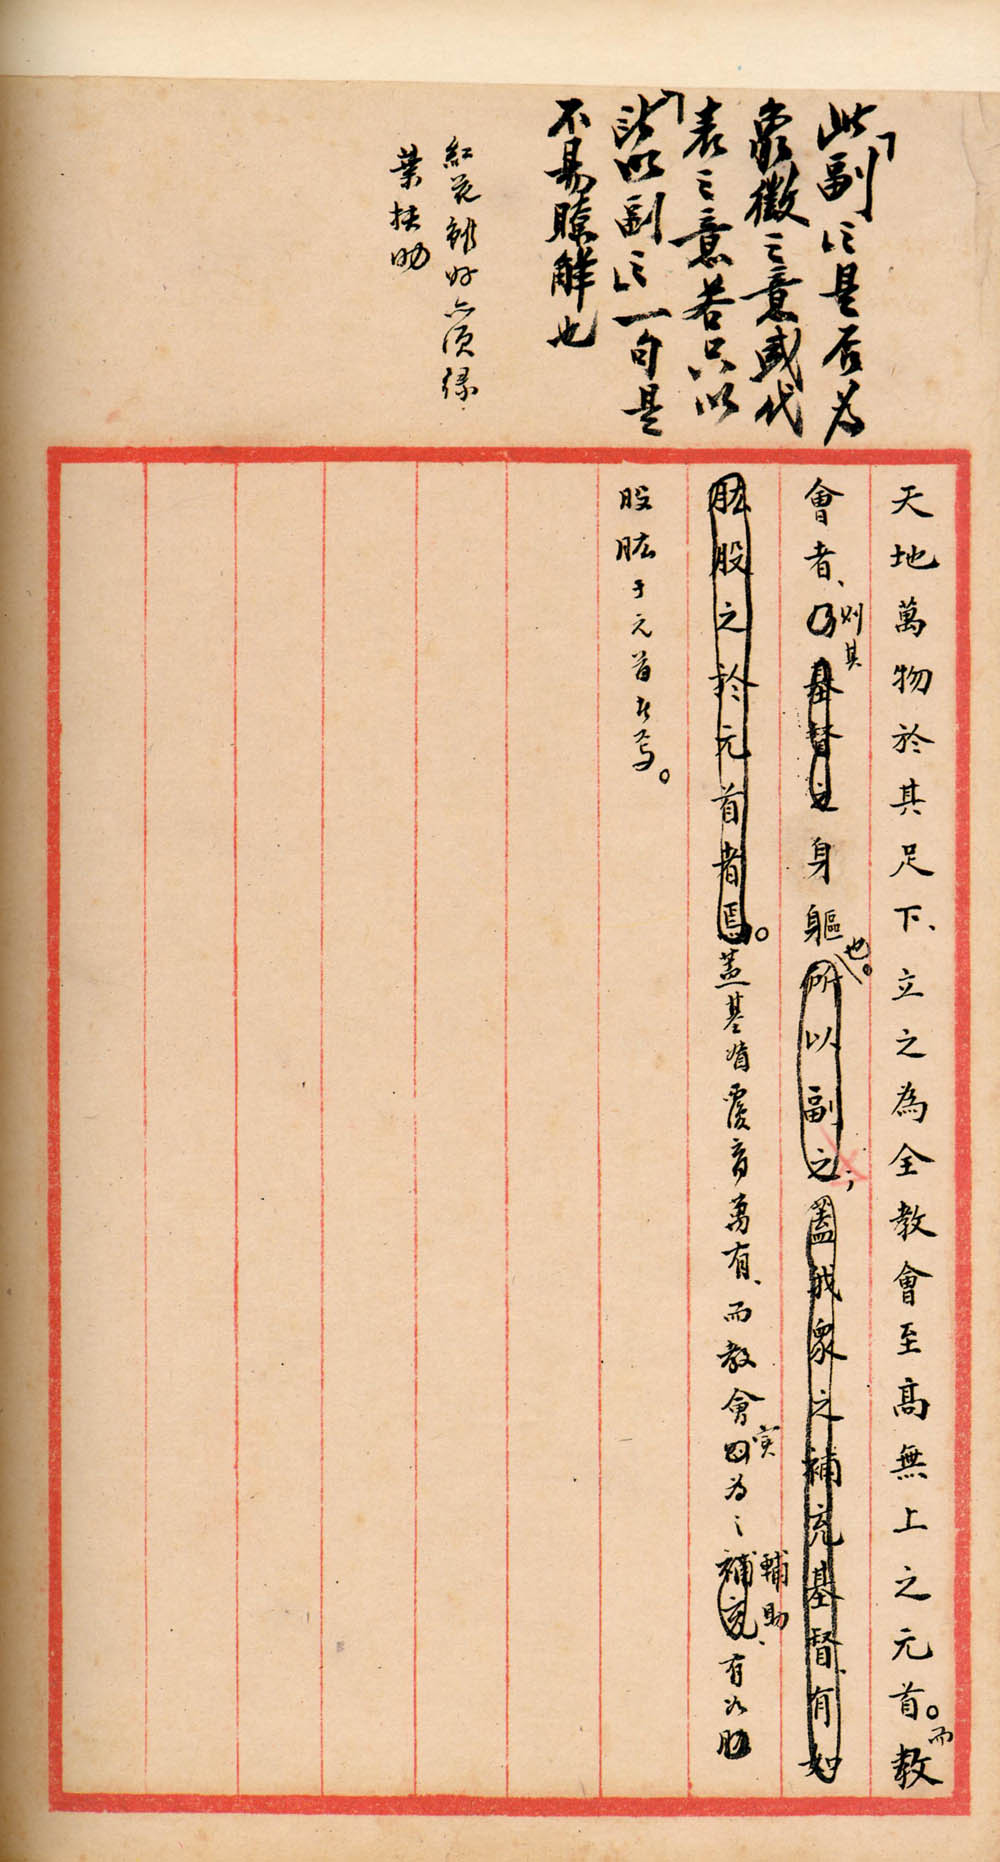 此「副」字是否為
象徵之意或代
表之意若只以
「所以副之」一句是
不易瞭解也
紅花雖好亦須綠
葉扶助
天地萬物於其足下、立之為全教會至高無上之元首。而教
會者、乃則其基督之身軀也。所以副之；蓋我眾之補充基督、有如
肱股之於元首者焉。蓋基督覆育萬有、而教會實為之補充輔助、有如
股肱于元首者焉。